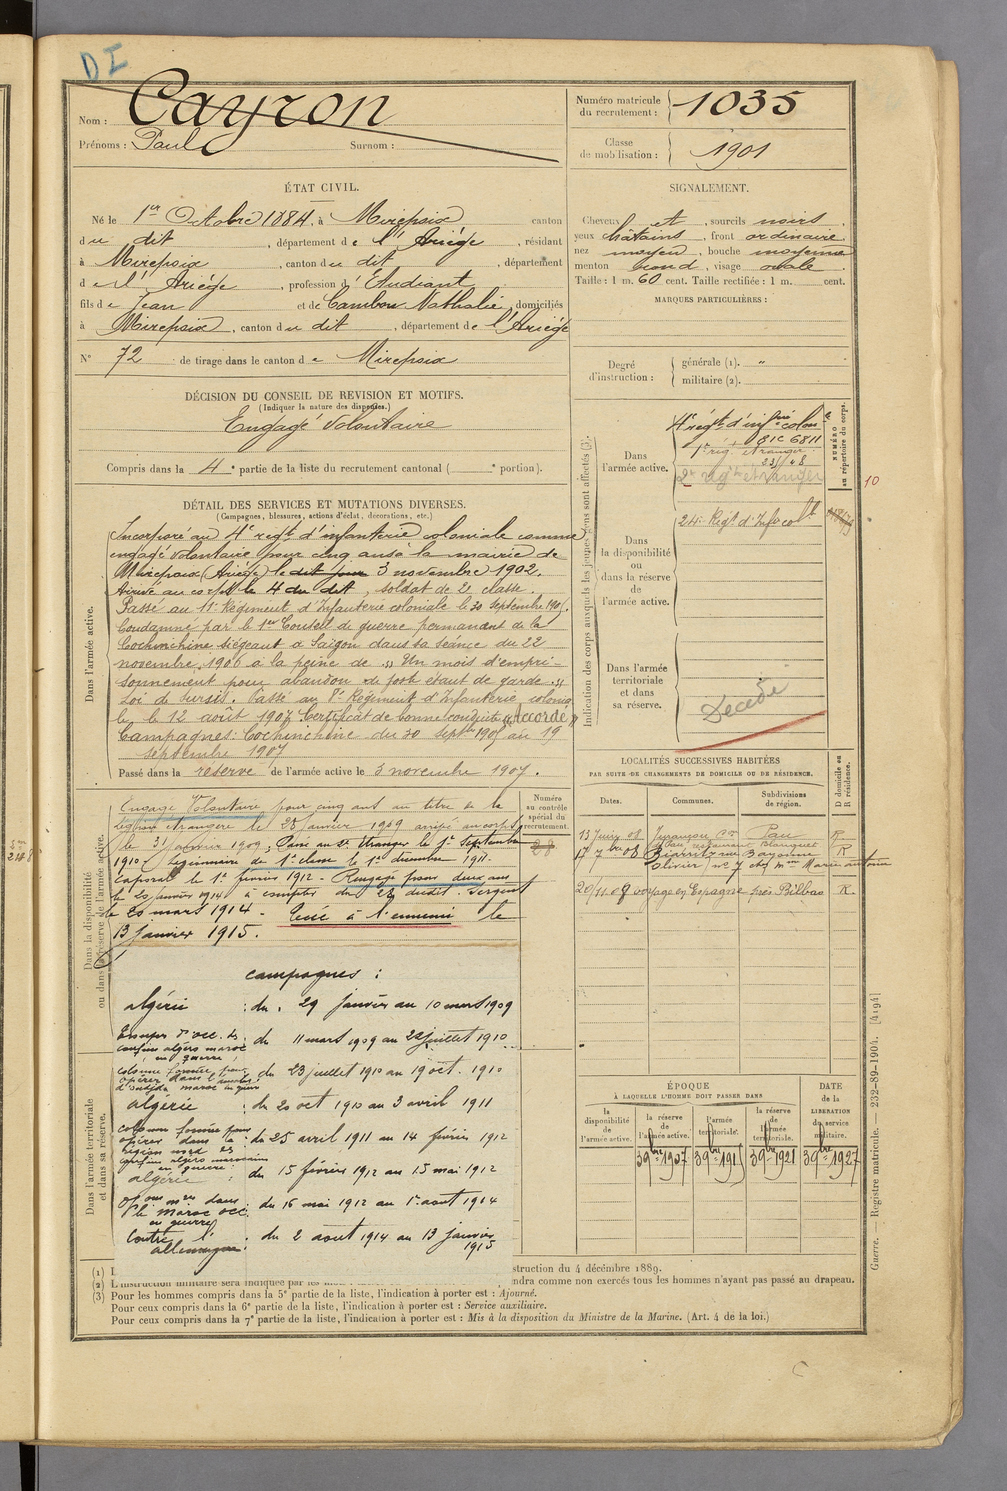 DI
Nom : Cayron
Prénoms : Paul Surnom :
Numéro matricule
du recrutement : 1035
Classe
de mobilisation : 1901
ÉTAT CIVIL.
Né le 1er Octobre 1884, à Mirepoix canton
du dit, département de l'Ariège, résidant
à Mirepoix, canton du dit, département
de l'Ariège, profession d'Etudiant
fils de Jean et de Cambou Nathalie, domiciliés
à Mirepoix, canton du dit, département de l'Ariège
N° 72 de tirage dans le canton de Mirepoix
SIGNALEMENT.
Cheveux et, sourcils noirs
yeux châtains, front ordinaire
nez moyen, bouche moyenne
menton rond, visage ovale.
Taille : 1 m. 60 cent. Taille rectifiée : 1 m. cent.
MARQUES PARTICULIÈRES :
Degré
d'instruction :
générale (1). "
militaire (2).
DÉCISION DU CONSEIL DE REVISION ET MOTIFS.
(Indiquer la nature des dispenses.)
Engagé Volontaire
Compris dans la 4e partie de la liste du recrutement cantonal ( e portion).
DÉTAIL DES SERVICES ET MUTATIONS DIVERSES.
(Campagnes, blessures, actions d'éclat, décorations, etc.)
Dans l'armée active.
Incorporé au 4e régt d'infanterie coloniale comme
engagé volontaire pour cinq ans à la mairie de
Mirepoix (Ariège) le dit jour 3 novembre 1902.
Arrivé au corps le 4 du dit, soldat de 2e classe.
Passé au 11e Régiment d'Infanterie coloniale le 30 septembre 1905.
Condamné par le 1er Conseil de guerre permanent de la
Cochinchine siégeant à Saïgon dans sa séance du 22
novembre 1906 à la peine de "Un mois d'empri-
sonnement pour abandon de poste étant de garde."
Loi de sursis. Passé au 8e Régiment d'Infanterie colonia
le le 12 août 1907 Certificat de bonne conduite "Accordé"
Campagnes: Cochinchine du 30 septbre 1905 au 19
septembre 1907
Passé dans la réserve de l'armée active le 3 novembre 1907.
Indication des corps auxquels les jeunes gens sont affectés (3).
NUMÉRO
au répertoire du corps.
Dans
l'armée active.
4e régt d'infrie colon
81C 6811
1er rég. étranger
2e régt étranger
10
Dans
la disponibilité
ou
dans la réserve
de
l'armée active.
24e Régt d'Inf col
Dans l'armée
territoriale
et dans
sa réserve.
Décédé
Dans la disponibilité
ou dans la réserve de l'armée active.
Numéro
au contrôle
spécial du
recrutement.
28
Engagé Volontaire pour cinq ans au titre de la
légion étrangère le 28 janvier 1909 arrivé au corps
le 31 janvier 1909; Passé au 2e Etranger le 1er septembre
1910. Légionnaire de 1e classe le 1er décembre 1911.
Caporal le 1er février 1912. Rengagé pour deux ans
le 20 janvier 1914 à compter du 28 dudit. Sergent
le 20 mars 1914. Tué à l'ennemi le
13 janvier 1915.
campagnes :
algérie : du 29 janvier au 10 mars 1909
Troupes d'occ. des
confins algéro maroc
en guerre : du 11 mars 1909 au 22 juillet 1910
colonne formée pour
opérer dans l'
d'oudjda maroc en guerre : du 23 juillet 1910 au 19 oct. 1910
algérie : du 20 oct 1910 au 3 avril 1911
colonne formée pour
opérer dans la
région nord des
confins algéro marocains
en guerre : du 25 avril 1911 au 14 février 1912
algérie : du 15 février 1912 au 15 mai 1912
opons mres dans
le maroc occ.
en guerre : du 16 mai 1912 au 1er aout 1914
Contre l'
allemagne : du 2 aout 1914 au 13 janvier
1915
Dans l'armée territoriale
et dans sa réserve.
LOCALITÉS SUCCESSIVES HABITÉES
PAR SUITE DE CHANGEMENTS DE DOMICILE OU DE RÉSIDENCE.
Dates. Communes. Subdivisions
de région. D domicile ou
R résidence.
13 Juin 08 Jurançon Con Pau R.
17 7bre 08 Biarritz rue Bayonne R
Olivier no 7 chez Mme Marie
20/11 08 voyage en Espagne près Bilbao R.
ÉPOQUE
À LAQUELLE L'HOMME DOIT PASSER DANS
la
disponibilité
de
l'armée active.
la réserve
de
l'armée active.
l'armée
territoriale.
la réserve
de
l'armée
territoriale.
DATE
de la
LIBÉRATION
du service
militaire.
3 9bre 1907 3 9bre 1915 3 9bre 1921 3 9bre 1927
(1) struction du 4 décembre 1889.
(2) L'instruction militaire sera indiquée par les ndra comme non exercés tous les hommes n'ayant pas passé au drapeau.
(3) Pour les hommes compris dans la 5e partie de la liste, l'indication à porter est : Ajourné.
Pour ceux compris dans la 6e partie de la liste, l'indication à porter est : Service auxiliaire.
Pour ceux compris dans la 7e partie de la liste, l'indication à porter est : Mis à la disposition du Ministre de la Marine. (Art. 4 de la loi.)
Guerre. — Registre matricule. — 232-89-1904. [4194]